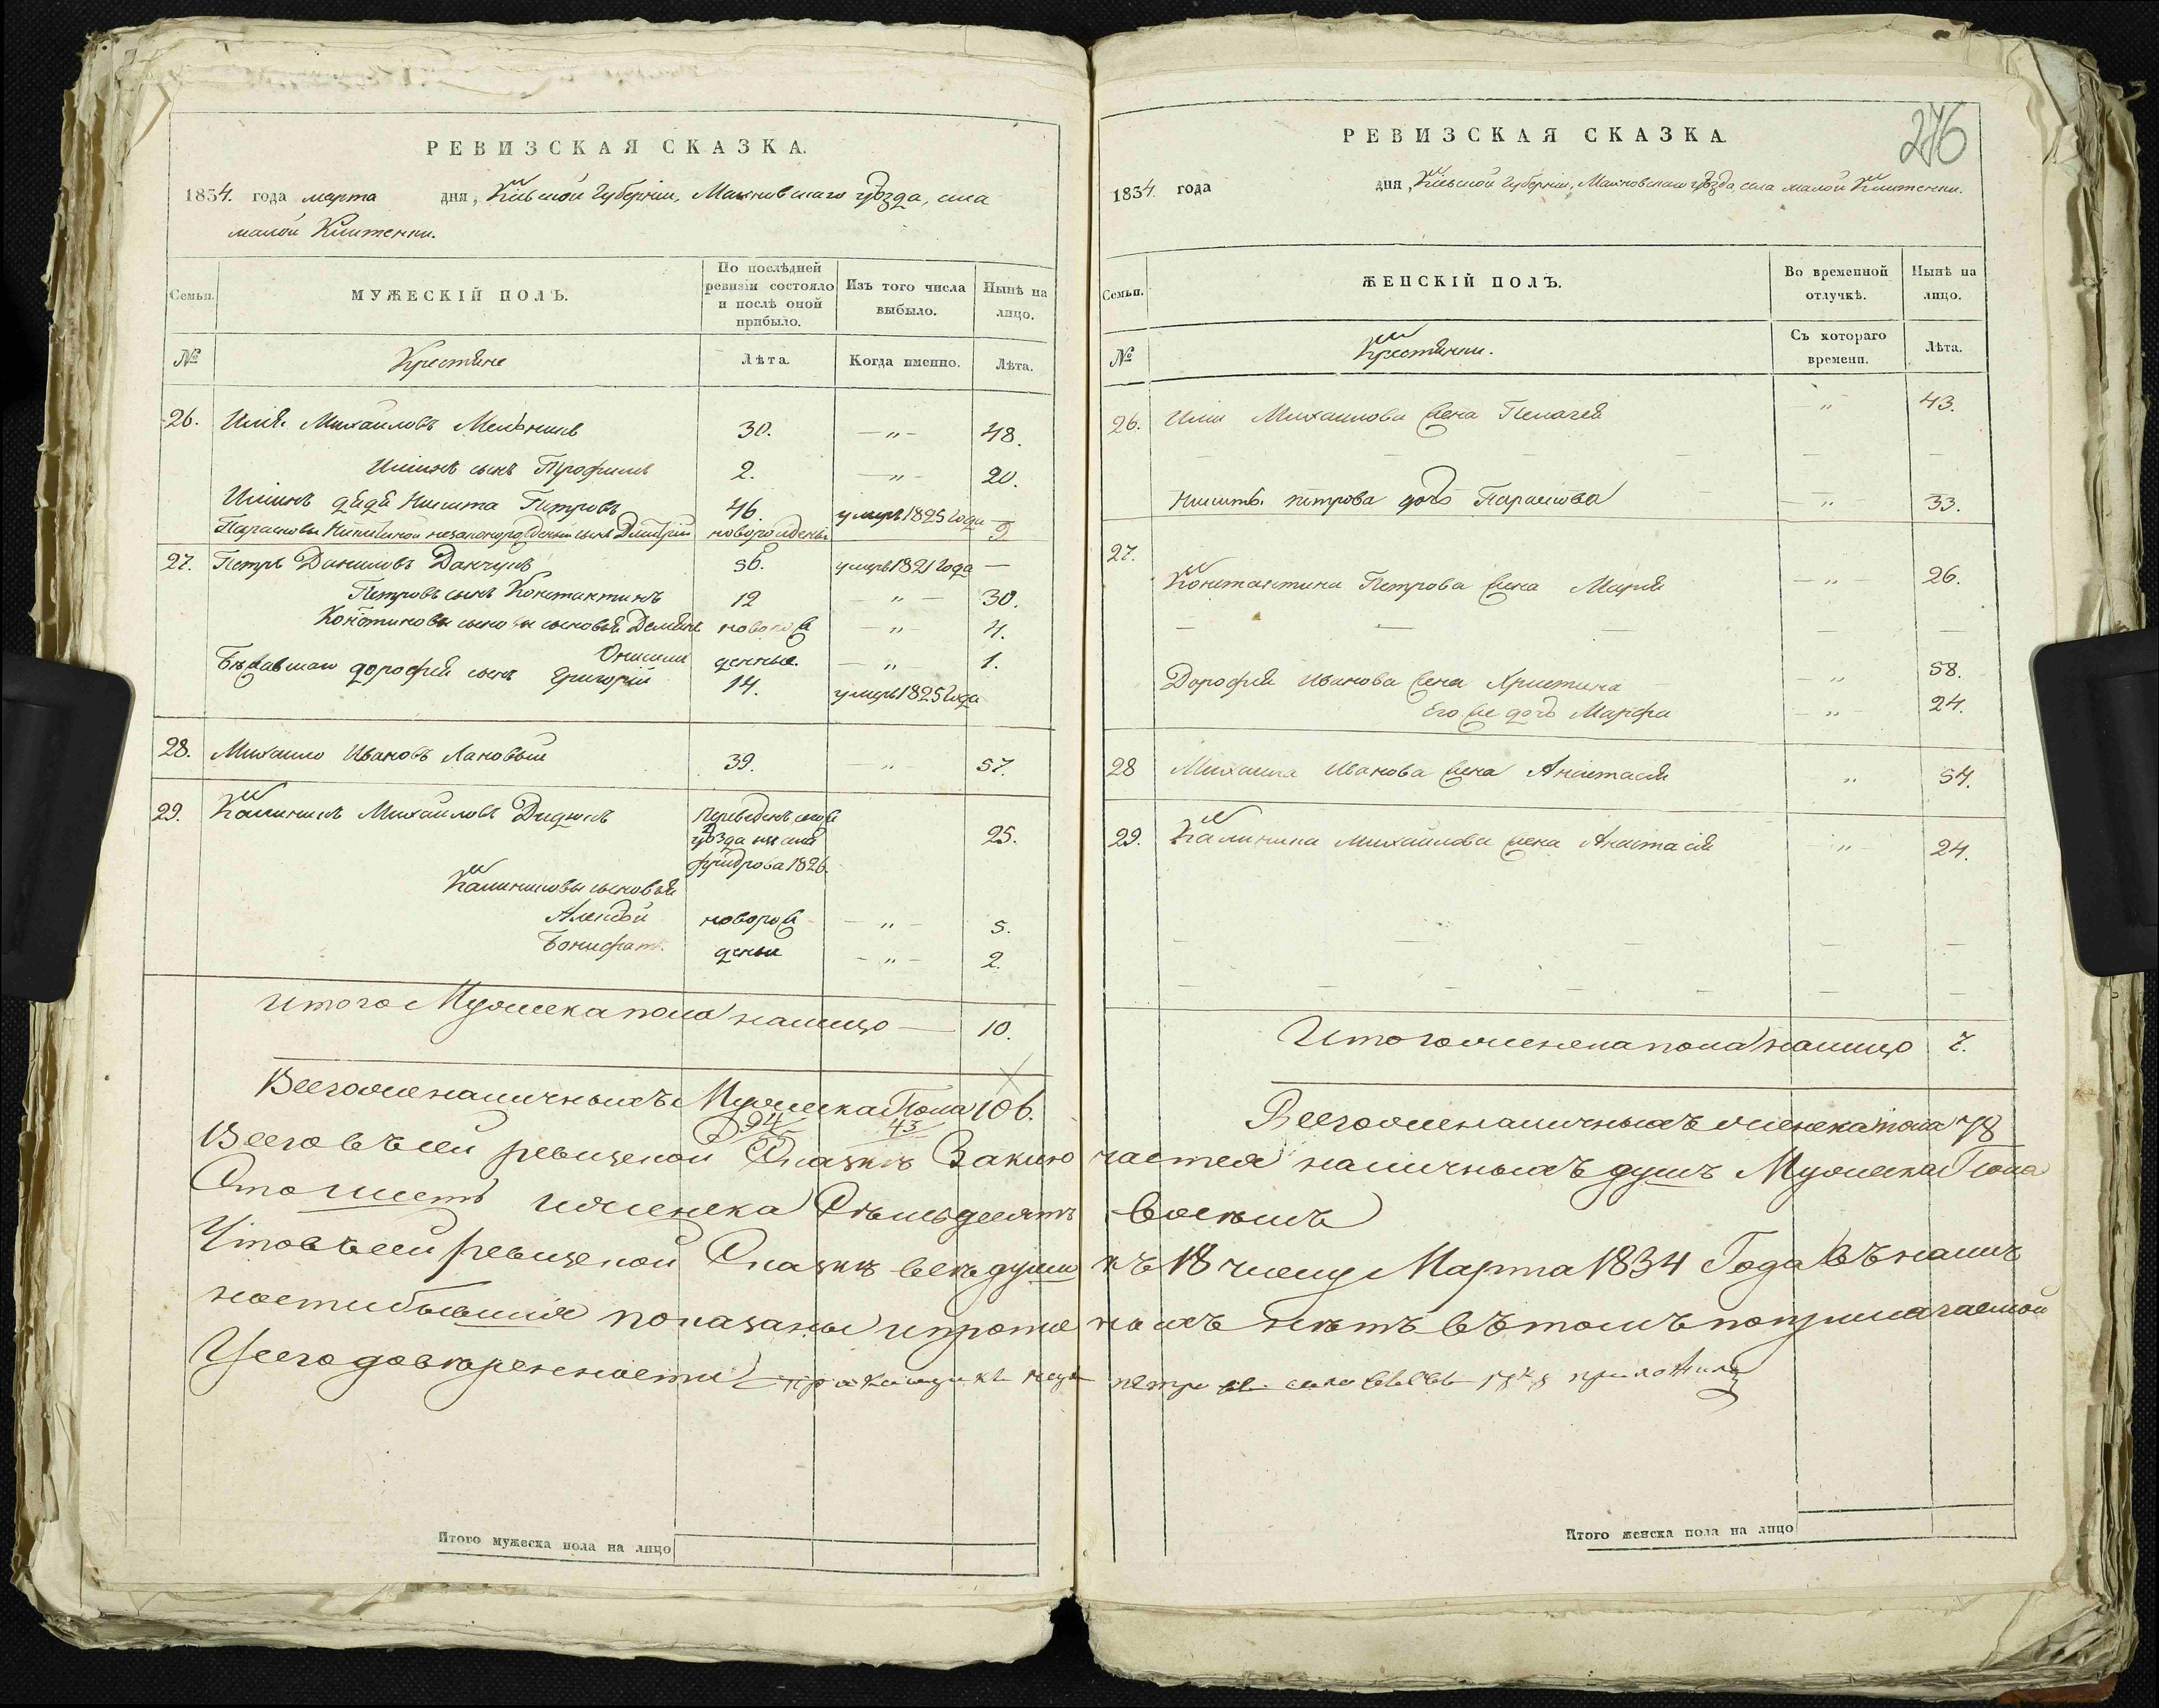 РЕВИЗСКАЯ СКАЗКА.
1834. года марта дня, Кіевской Губерніи, Махновскаго уѣзда, села
малой Клитенки.
Семьи.
МУЖЕСКІЙ ПОЛЪ.
По послѣдней ревизіи состояло и послѣ оной прибыло.
Изъ того числа выбыло.
Нынѣ на лицо.
№
Крестяне
Лѣта.
Когда именно.
Лѣта.
26. Илія Михаиловъ Мельникъ 30. — „ — 48.
Иліинъ сынъ Трофимъ 2. — „ — 20.
Иліинъ дядя Никита Петровъ 46. умеръ 1825 года —
Парасковьи Никитиной незаконорожденый сынъ Дмитрій новорожденый 9
27. Петръ Даниловъ Данчукъ 56. умеръ 1821 года —
Петровъ сынъ Константинъ 12 — „ — 30.
сыновья Демянъ новорож 4.
Онисим денные. — „ — 1.
дорофея сынъ Григорій 14. умеръ 1825 года
28. Михаило Ивановъ Лановый 39. — „ 57.
29. Калиникъ Михаиловъ Дидукъ 25.
уѣзда
1826.
Калиниковы сыновья
Алексѣй новорож — „ — 5.
Бонифат. деныи — „ — 2.
Итого Мужеска пола налицо — 10.
Всегоже наличныхъ Мужеска Пола 106.
94 43
РЕВИЗСКАЯ СКАЗКА
276
1834 года дня, Кіевской Губерніи, Махновскаго уѣзда, села малой Клитенки.
Семьи.
ЖЕНСКІЙ ПОЛЪ.
Во временной отлучкѣ.
Нынѣ на лицо.
№
Крестянки.
Съ котораго времени.
Лѣта.
26. Иліи Михаилова жена Пелагея „ 43.
Никиты петрова дочь Парасковя „ 33.
27.
Константина Петрова жена Марія — „ — 26.
Дорофея Иванова жена Христина — „ 58.
Его же дочь Марфа — „ — 24.
28 Михаила Иванова жена Анастасія „ 54.
29. Калиника Михаилова жена Анастасія „ 24.
Итого женска пола налицо 7.
Всегоже наличныхъ женска пола 78
Всего въ сей ревизской Сказкѣ Заключается наличныхъ душъ Мужеска Пола
Сто шесть и женска Семьдесятъ восемь
Что въ сей ревизской Сказкѣ всѣ души къ 18 числу Марта 1834 Года въ налич
ности бывшия показаны и проме ныхъ нѣтъ въ томъ
петро приложилъ
Итого мужеска пола на лицо
Итого женска пола на лицо